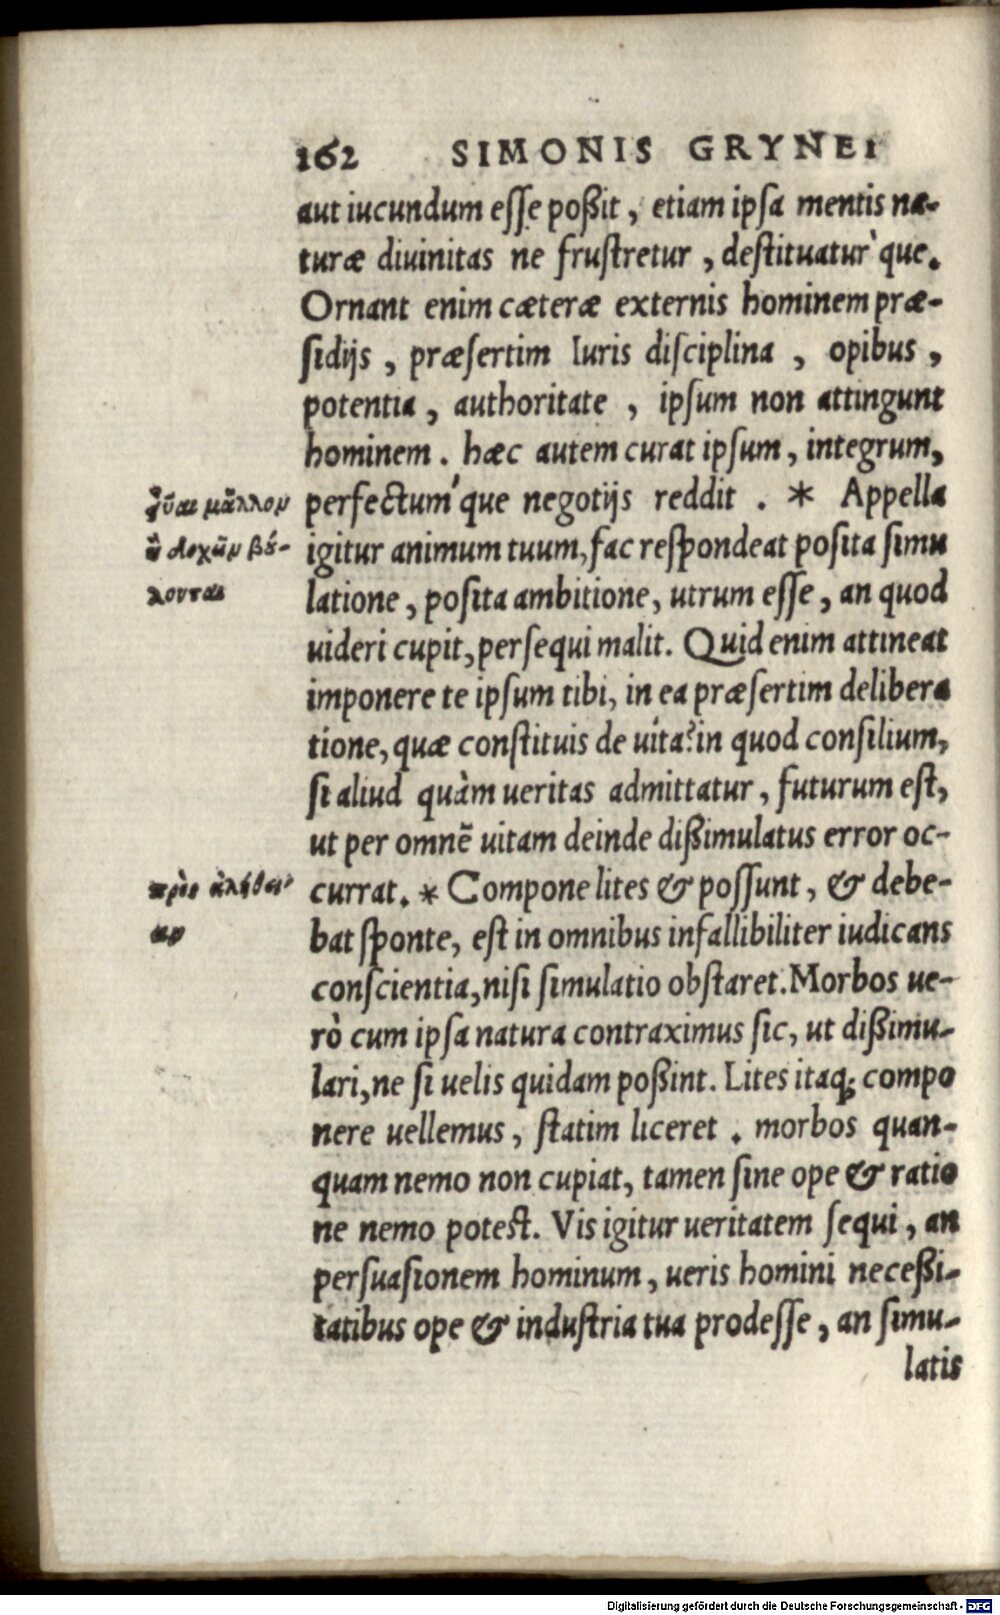 162 SIMONIS GRYNEI
aut iucundum esse poßit, etiam ipsa mentis na-
turæ diuinitas ne frustretur, destituatur'que.
Ornant enim cæteræ externis hominem præ-
sidijs, præsertim Iuris disciplina, opibus,
potentia, authoritate, ipsum non attingunt
hominem. hæc autem curat ipsum, integrum,
perfectum'que negotijs reddit. * Appella
igitur animum tuum, fac respondeat posita simu
latione, posita ambitione, utrum esse, an quod
uideri cupit, persequi malit. Quid enim attineat
imponere te ipsum tibi, in ea præsertim delibera
tione, quæ constituis de uita? in quod consilium,
si aliud quàm ueritas admittatur, futurum est,
ut per omnē uitam deinde dißimulatus error oc-
currat. * Compone lites & possunt, & debe-
bat sponte, est in omnibus infallibiliter iudicans
conscientia, nisi simulatio obstaret. Morbos ue-
rò cum ipsa natura contraximus sic, ut dißimu-
lari, ne si uelis quidam poßint. Lites itaq; compo
nere uellemus, statim liceret. morbos quan-
quam nemo non cupiat, tamen sine ope & ratio
ne nemo potest. Vis igitur ueritatem sequi, an
persuasionem hominum, ueris homini neceßi-
tatibus ope & industria tua prodesse, an simu-
latis
μᾶλλον
ἢ δοκῶν βό-
λονται
Digitalisierung gefördert durch die Deutsche Forschungsgemeinschaft - DFG